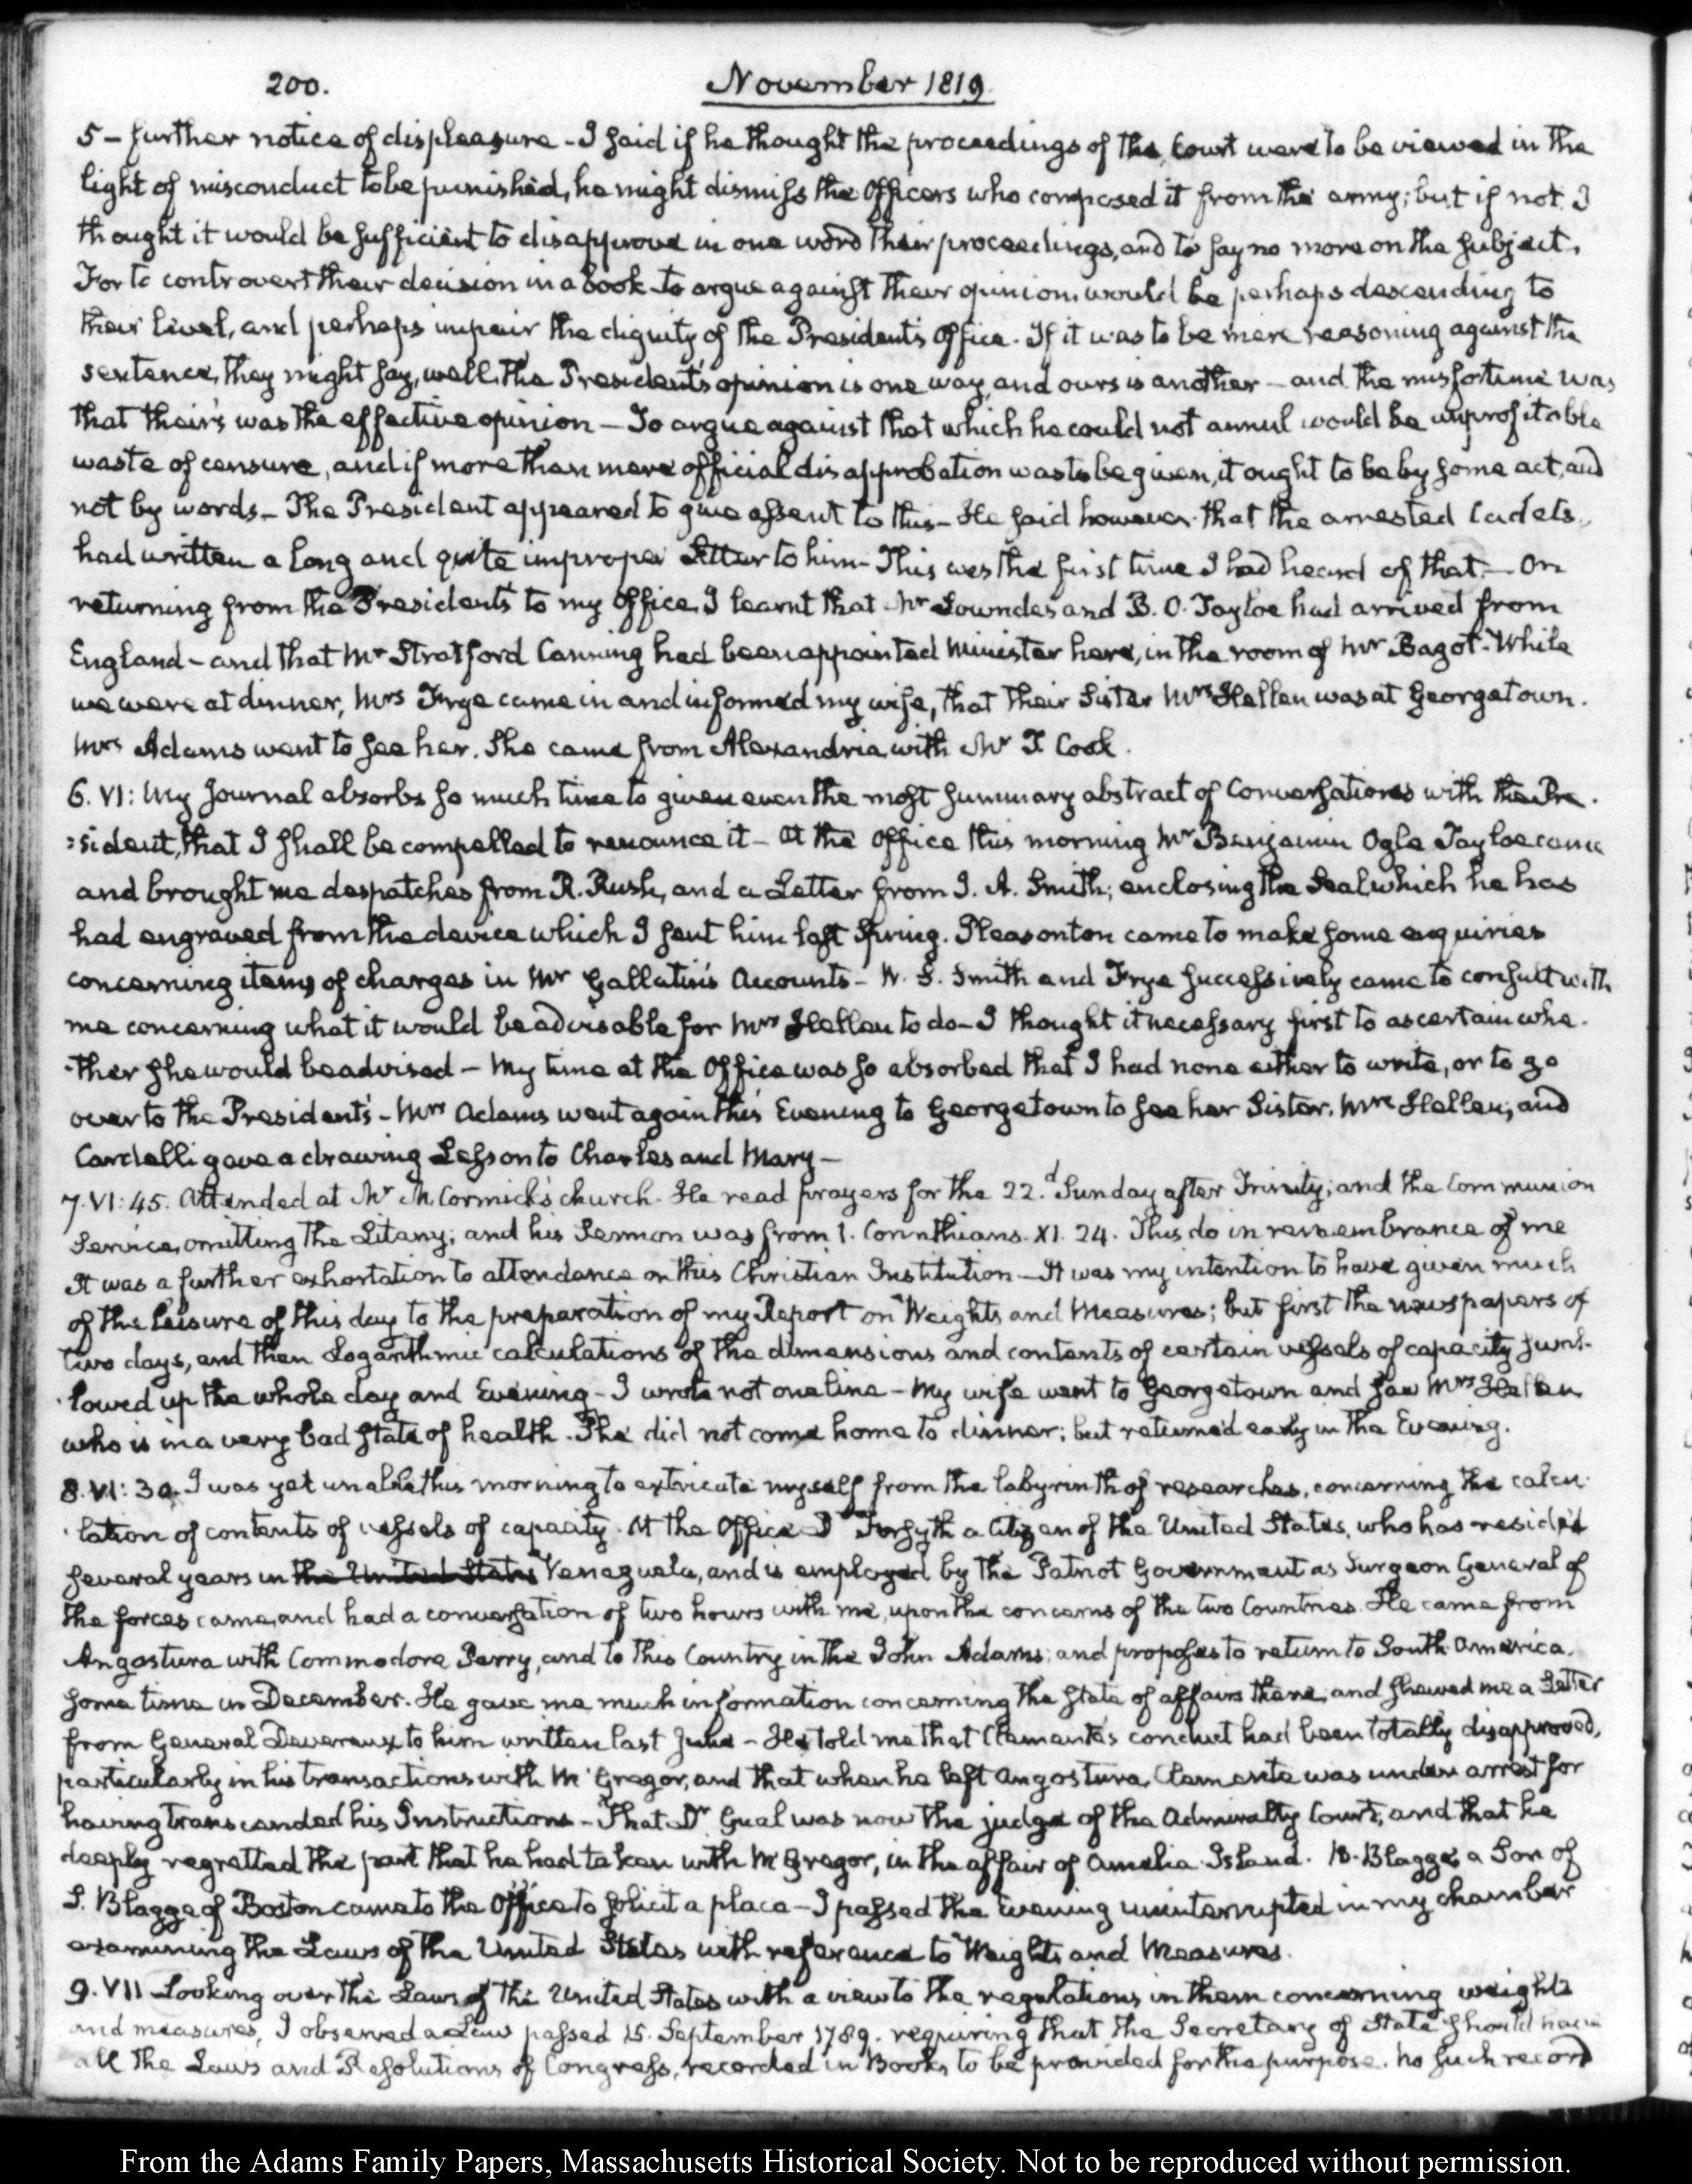 200.
November 1819.
5 - further notice of displeasure - I said if he thought the proceedings of the Court were to be viewed in the
light of misconduct to be punished, he might dismiss the Officers who composed it from the army; but if not I
thought it would be sufficient to disapprove in one word their proceedings, and to say no more on the subject.
For to controvert their decision in a book to argue against their opinion, would be perhaps descending to
their level, and perhaps impair the dignity of the President's Office. If it was to be mere reasoning against the
sentence, they might say, well, the President's opinion is one way, and ours is another - and the misfortune was
that their's was the effective opinion - To argue against that which he could not annul would be unprofitable
waste of censure, and if more than mere official disapprobation was to be given, it ought to be by some act, and
not by words - The President appeared to give assent to this - He said however that the arrested Cadets
had written a long and quite improper Letter to him - This was the first time I had heard of that. - On
returning from the President's to my Office, I learnt that Mr Lowndes and B. O. Tayloe had arrived from
England - and that Mr Stratford Canning had been appointed Minister here, in the room of Mr Bagot - While
we were at dinner, Mrs Frye came in and informed my wife, that their Sister Mrs Hellen was at Georgetown.
Mrs Adams went to see her. She came from Alexandria with Mr T. Cook.
6. VI: My Journal absorbs so much time to given even the most summary abstract of Conversations with the Pre-
:sident, that I shall be compelled to renounce it - At the Office this morning Mr Benjamin Ogle Tayloe came
and brought me despatches from R. Rush, and a Letter from J. A. Smith; enclosing the Seal which he has
had engraved from the device which I sent him last Spring. Pleasonton came to make some enquiries
concerning items of charges in Mr Gallatin's Accounts - W. S. Smith and Frye successively came to consult with
me concerning what it would be advisable for Mrs Hellen to do - I thought it necessary first to ascertain whe-
-ther she would be advised - My time at the Office was so absorbed that I had none either to write, or to go
over to the President's - Mrs Adams went again this Evening to Georgetown to see her Sister, Mrs Hellen; and
Cardelli gave a drawing Lesson to Charles and Mary -
7. VI: 45. Attended at Mr McCormick's church. He read prayers for the 22.d Sunday after Trinity; and the Communion
Service, omitting the Litany; and his Sermon was from 1. Corinthians. XI. 24. This do in remembrance of me
It was a further exhortation to attendance on this Christian Institution - It was my intention to have given much
of the leisure of this day to the preparation of my Report on Weights and Measures; but first the newspapers of
two days, and then Logarithmic calculations of the dimensions and contents of certain vessels of capacity swal-
-lowed up the whole day and Evening - I wrote not one line - My wife went to Georgetown and saw Mrs Hellen
who is in a very bad state of health. She did not come home to dinner; but returned early in the Evening.
8. VI: 30. I was yet unable this morning to extricate myself from the labyrinth of researches, concerning the calcu-
-lation of contents of vessels of capacity. At the Office Forsyth a Citizen of the United States, who has resided
several years in the United States Venezuela, and is employed by the Patriot Government as Surgeon General of
the forces came, and had a conversation of two hours with me, upon the concerns of the two Countries. He came from
Angostura with Commodore Perry, and to this Country in the John Adams; and proposes to return to South America.
some time in December. He gave me much information concerning the state of affairs there, and shewed me a Letter
from General Devereux to him written last June - He told me that Clemente's conduct had been totally disapproved,
particularly in his transactions with McGregor, and that when he left Angostura, Clemente was under arrest for
having transcended his Instructions - That Dr Gual was now the judge of the Admiralty Court, and that he
deeply regretted the part that he had taken with McGregor, in the affair of Amelia Island. B. Blagge a Son of
S. Blagge of Boston came to the Office to solicit a place - I passed the Evening uninterrupted in my chamber
examining the Laws of the United States with reference to Weights and Measures.
9. VII Looking over the Laws of the United States with a view to the regulations in them concerning weights
and measures, I observed a Law passed 15. September 1789. requiring that the Secretary of State should have
all the Laws and Resolutions of Congress, recorded in Books to be provided for the purpose. No such record
From the Adams Family Papers, Massachusetts Historical Society. Not to be reproduced without permission.